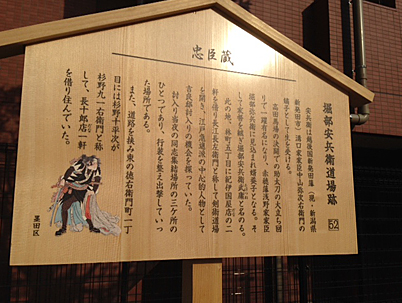 忠臣蔵
堀部安兵衛道場跡
52
安兵衛は越後国新発田藩(現・新潟県
新発田市)溝口家家臣中山弥次右衛門の
嫡子として生を受ける。
高田馬場の決闘での助太刀の大立ち回
りで一躍有名になり、赤穂藩浅野家家臣
堀部弥兵衛に見込まれ婿養子となる。そ
して家督を継ぎ堀部安兵衛武庸と名のる。
此の地、林町五丁目に紀伊国屋店の一
軒を借り長江長左衛門と称して剣術道場
を開き、江戸急進派の中心的人物として
吉良邸討入りの機会を探っていた。
討入り当夜の同志集結場所の三ケ所の
ひとつであり、行装を整え出撃していっ
た場所である。
また、道路を挟み東の徳右衛門町一丁
目には杉野十平次が
杉野九一右衛門と称
して、長十郎店一軒
を借り住んでいた。
墨田区